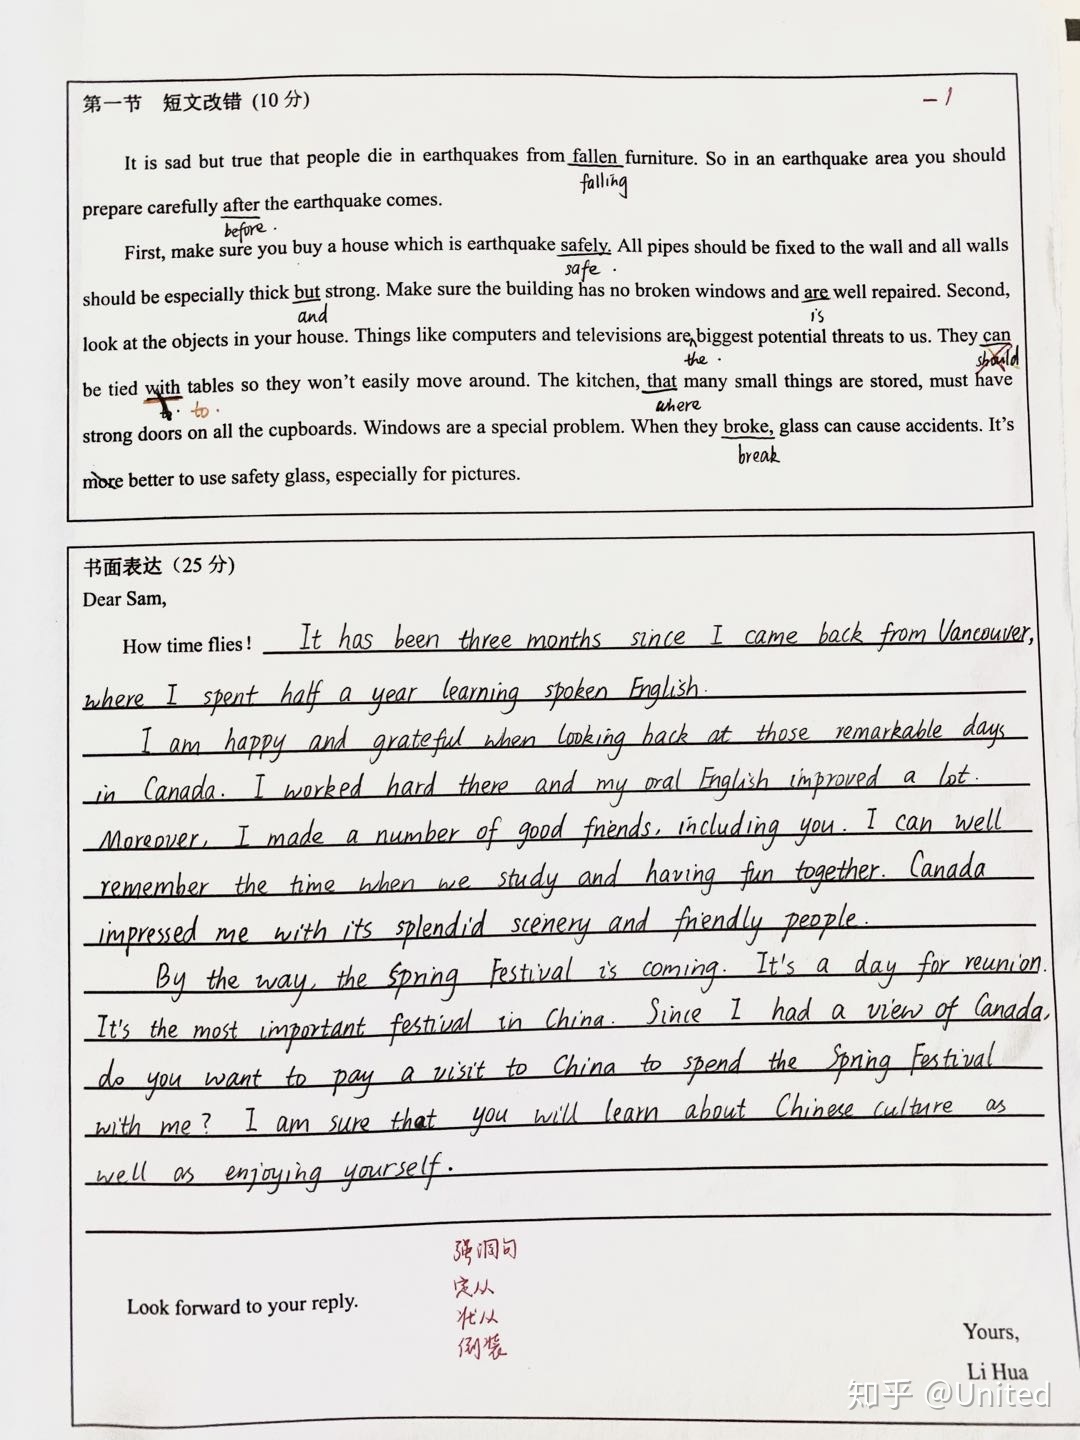 第一节 短文改错 (10 分)
-1
It is sad but true that people die in earthquakes from fallen furniture. So in an earthquake area you should
falling
prepare carefully after the earthquake comes.
before.
First, make sure you buy a house which is earthquake safely. All pipes should be fixed to the wall and all walls
safe.
should be especially thick but strong. Make sure the building has no broken windows and are well repaired. Second,
and is
look at the objects in your house. Things like computers and televisions are biggest potential threats to us. They can
the. should
be tied with tables so they won't easily move around. The kitchen, that many small things are stored, must have
to. where
strong doors on all the cupboards. Windows are a special problem. When they broke, glass can cause accidents. It's
break
more better to use safety glass, especially for pictures.
书面表达（25 分)
Dear Sam,
How time flies! It has been three months since I came back from Vancouver,
where I spent half a year learning spoken English.
I am happy and grateful when looking back at those remarkable days
in Canada. I worked hard there and my oral English improved a lot.
Moreover, I made a number of good friends, including you. I can well
remember the time when we study and having fun together. Canada
impressed me with its splendid scenery and friendly people.
By the way, the Spring Festival is coming. It's a day for reunion.
It's the most important festival in China. Since I had a view of Canada,
do you want to pay a visit to China to spend the Spring Festival
with me? I am sure that you will learn about Chinese culture as
well as enjoying yourself.
强调句
定从
状从
倒装
Look forward to your reply.
Yours,
Li Hua
知乎 @United